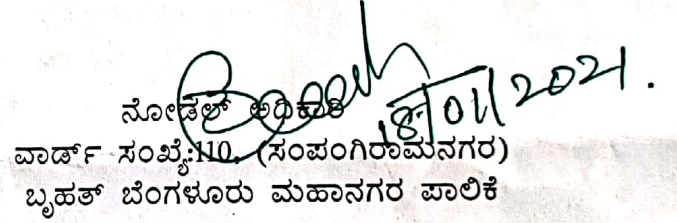 18/01/2021.
ನೋಡಲ್ ಅಧಿಕಾರಿ
ವಾರ್ಡ್ ಸಂಖ್ಯೆ:110, (ಸಂಪಂಗಿರಾಮನಗರ)
ಬೃಹತ್ ಬೆಂಗಳೂರು ಮಹಾನಗರ ಪಾಲಿಕೆ